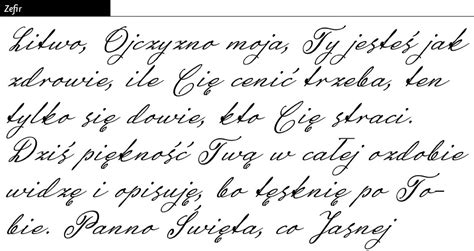 Zefir
Litwo, Ojczyzno moja, Ty jesteś jak
zdrowie, ile Cię cenić trzeba, ten
tylko się dowie, kto Cię straci.
Dziś piękność Twą w całej ozdobie
widzę i opisuję, bo tęsknię po To-
bie. Panno Święta, co Jasnej